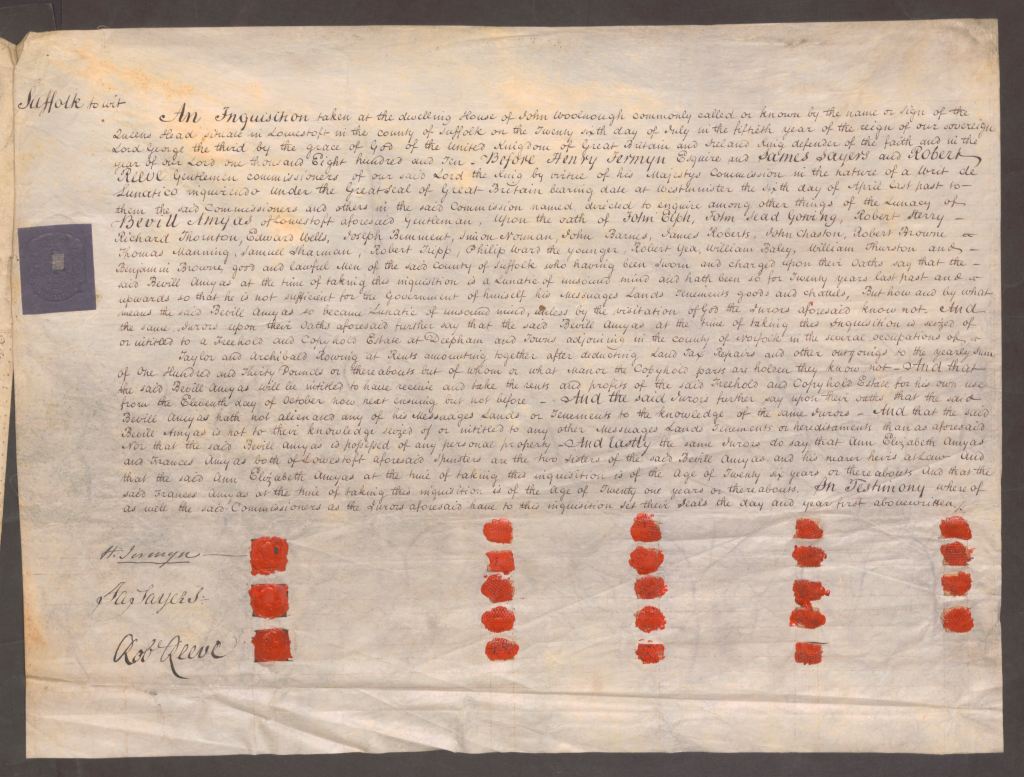 Suffolk to wit
An Inquisition taken at the dwelling House of John Woolnough commonly called or known by the name or Sign of the
Queens Head situate in Lowestoft in the county of Suffolk on the Twenty sixth day of July in the fiftieth year of the reign of our sovereign
Lord George the third by the grace of God of the United Kingdom of Great Britain and Ireland King defender of the Faith and in the
year of our Lord one thousand Eight hundred and Ten - Before Henry Jermyn Esquire and James Sayers and Robert
Reeve Gentlemen commissioners of our said Lord the King by virtue of his Majestys Commission in the nature of a Writ de
Lunatico inquirendo under the Great Seal of Great Britain bearing date at Westminster the Sixth day of April last past to
them the said Commissioners and others in the said Commission named directed to enquire among other things of the Lunacy of
Bevill Amyas of Lowestoft aforesaid Gentleman, Upon the oath of John Elph, John Sead Gowing, Robert Herry -
Richard Thornton, Edward Wells, Joseph Bemment, Simon Norman, John Barnes, James Roberts, John Chaston, Robert Browne
Thomas Manning, Samuel Sharman, Robert Tripp, Philip Ward the younger, Robert Gea, William Baley, William Thurston and -
Benjamin Browne, good and lawful Men of the said County of Suffolk who having been Sworn and charged upon their Oaths say that the -
said Bevill Amyas at the time of taking this inquisition is a Lunatic of unsound mind and hath been so for Twenty years last past and
upwards so that he is not sufficient for the Government of himself his Messuages Lands Tenements goods and chattels, But how and by what
means the said Bevill Amyas so became Lunatic of unsound mind, unless by the visitation of God the Jurors aforesaid know not. And
the same Jurors upon their Oaths aforesaid further say that the said Bevill Amyas at the time of taking this Inquisition is seized of
or intitled to a Freehold and Copyhold Estate at Deepham and Towns adjoining in the county of Norfolk in the several occupations of
Taylor and Archibald Rowing at Rents amounting together after deducting Land Tax Repairs and other outgoings to the yearly sum
of One Hundred and Thirty Pounds or thereabouts but of whom or what Manor the Copyhold parts are holden they know not - And that
the said Bevill Amyas will be intitled to have receive and take the rents and profits of the said Freehold and Copyhold Estate for his own use
from the Eleventh day of October now next ensuing but not before - And the said Jurors further say upon their oaths that the said
Bevill Amyas hath not aliened any of his Messuages Lands or Tenements to the knowledge of the same Jurors - And that the said
Bevill Amyas is not to their knowledge seized of or intitled to any other Messuages Lands Tenements or hereditaments than as aforesaid
Nor that the said Bevill Amyas is possessed of any personal property - And lastly the same Jurors do say that Ann Elizabeth Amyas
and Frances Amyas both of Lowestoft aforesaid Spinsters are the two sisters of the said Bevill Amyas and his nearer heirs at Law And
that the said Ann Elizabeth Amyas at the time of taking this inquisition is of the Age of Twenty six years or thereabouts And that the
said Frances Amyas at the time of taking this inquisition is of the Age of Twenty one years or thereabouts. In Testimony whereof
as well the said Commissioners as the Jurors aforesaid have to this inquisition set their Seals the day and year first abovewritten
H. Jermyn
Jas Sayers
Robt Reeve